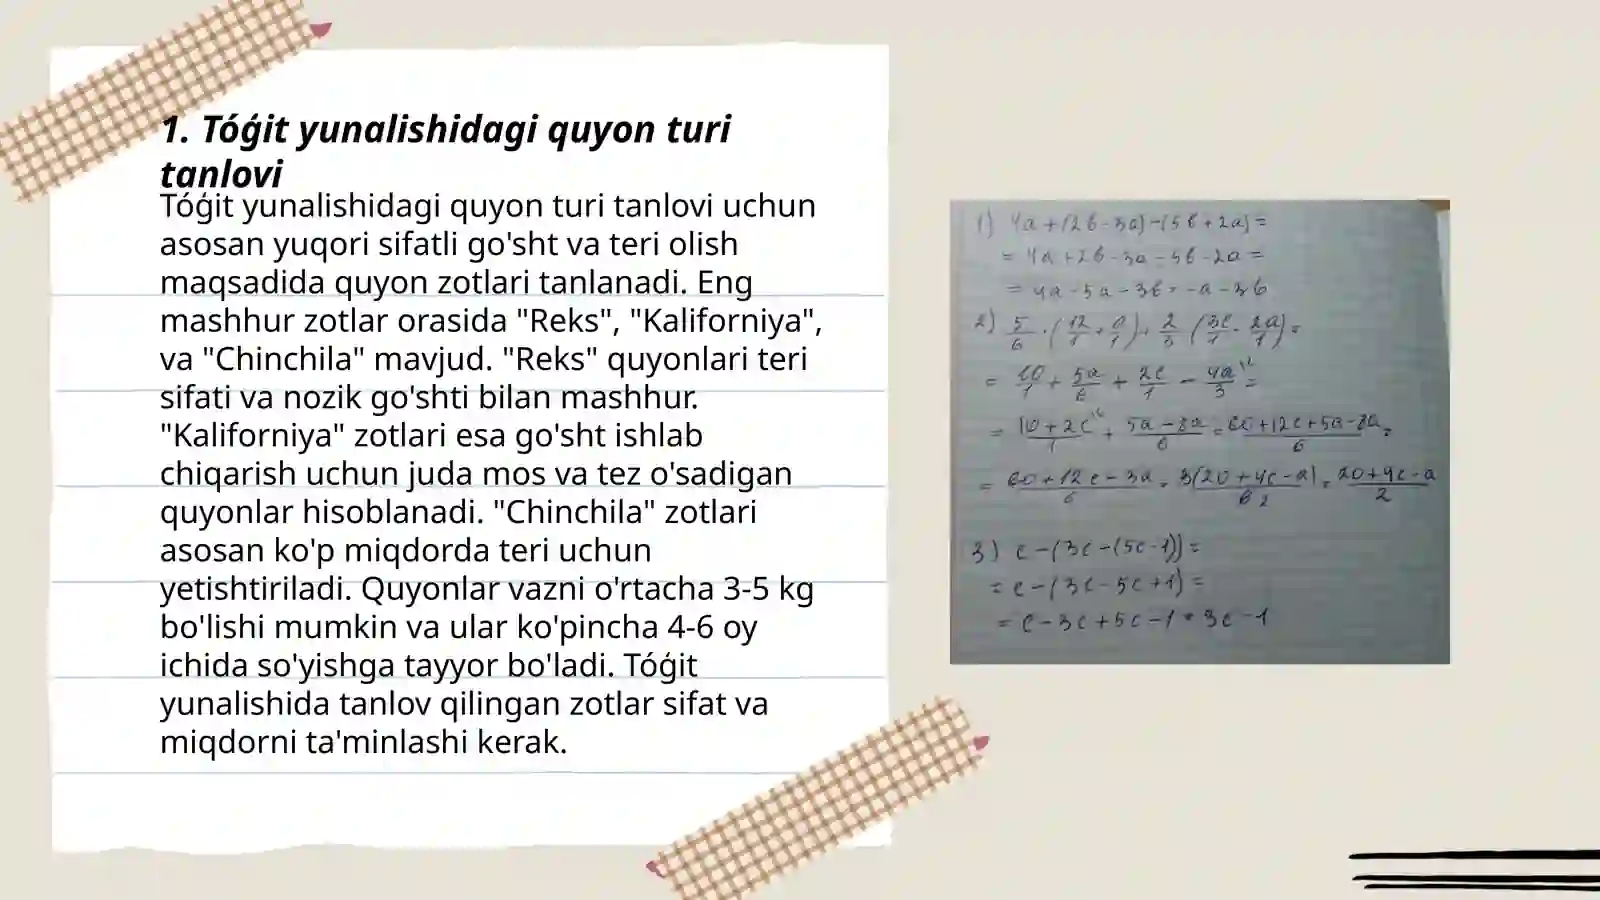 1. Tóǵit yunalishidagi quyon turi
tanlovi
Tóǵit yunalishidagi quyon turi tanlovi uchun
asosan yuqori sifatli go'sht va teri olish
maqsadida quyon zotlari tanlanadi. Eng
mashhur zotlar orasida "Reks", "Kaliforniya",
va "Chinchila" mavjud. "Reks" quyonlari teri
sifati va nozik go'shti bilan mashhur.
"Kaliforniya" zotlari esa go'sht ishlab
chiqarish uchun juda mos va tez o'sadigan
quyonlar hisoblanadi. "Chinchila" zotlari
asosan ko'p miqdorda teri uchun
yetishtiriladi. Quyonlar vazni o'rtacha 3-5 kg
bo'lishi mumkin va ular ko'pincha 4-6 oy
ichida so'yishga tayyor bo'ladi. Tóǵit
yunalishida tanlov qilingan zotlar sifat va
miqdorni ta'minlashi kerak.
1) 4a + (2b - 3a) - (5b + 2a) =
= 4a + 2b - 3a - 5b - 2a =
= 4a - 5a - 3b = -a - 3b
= 10/1 + 5a/6 + 2c/1 - 4a/3 =
= (60 + 12c - 3a)/6 = 3(20 + 4c - a)/6 2 = (20 + 4c - a)/2
3) c - (3c - (5c - 1)) =
= c - (3c - 5c + 1) =
= c - 3c + 5c - 1 = 3c - 1